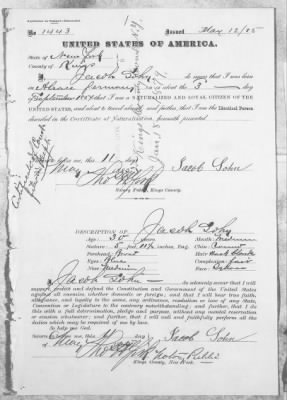 No. 1443 Issued May 12/85
UNITED STATES OF AMERICA.
State of New York
County of Kings
I, Jacob Sohn do swear that I was born
in Alsace Germany on or about the 3 day
September 1854 that I am a NATURALIZED AND LOYAL CITIZEN OF THE
UNITED STATES, and about to travel abroad; and further, that I am the Identical Person
described in the Certificate of Naturalization, herewith presented
me, this 11 day
May Jacob Sohn
Notary Public, Kings County.
DESCRIPTION OF Jacob Sohn
Age: 30 years Mouth: Medium
Stature: 5 feet inches, Eng. Chin: Round
Forehead: Hair: Black
Eyes: Complexion:
Nose: Medium Face:
I, Jacob Sohn do solemnly swear that I will
support, protect and defend the Constitution and Government of the United States
against all enemies, whether domestic or foreign; and that I will bear true faith,
allegiance, and loyalty to the same, any ordinance, resolution or law of any State,
Convention or Legislature to the contrary notwithstanding; and further, that I do
this with a full determination, pledge and purpose, without any mental reservation
or evasion whatsoever; and further, that I will well and faithfully perform all the
duties which may be required of me by law.
So help me God.
me, this day
May Jacob Sohn
Notary Public
Kings County, New York.